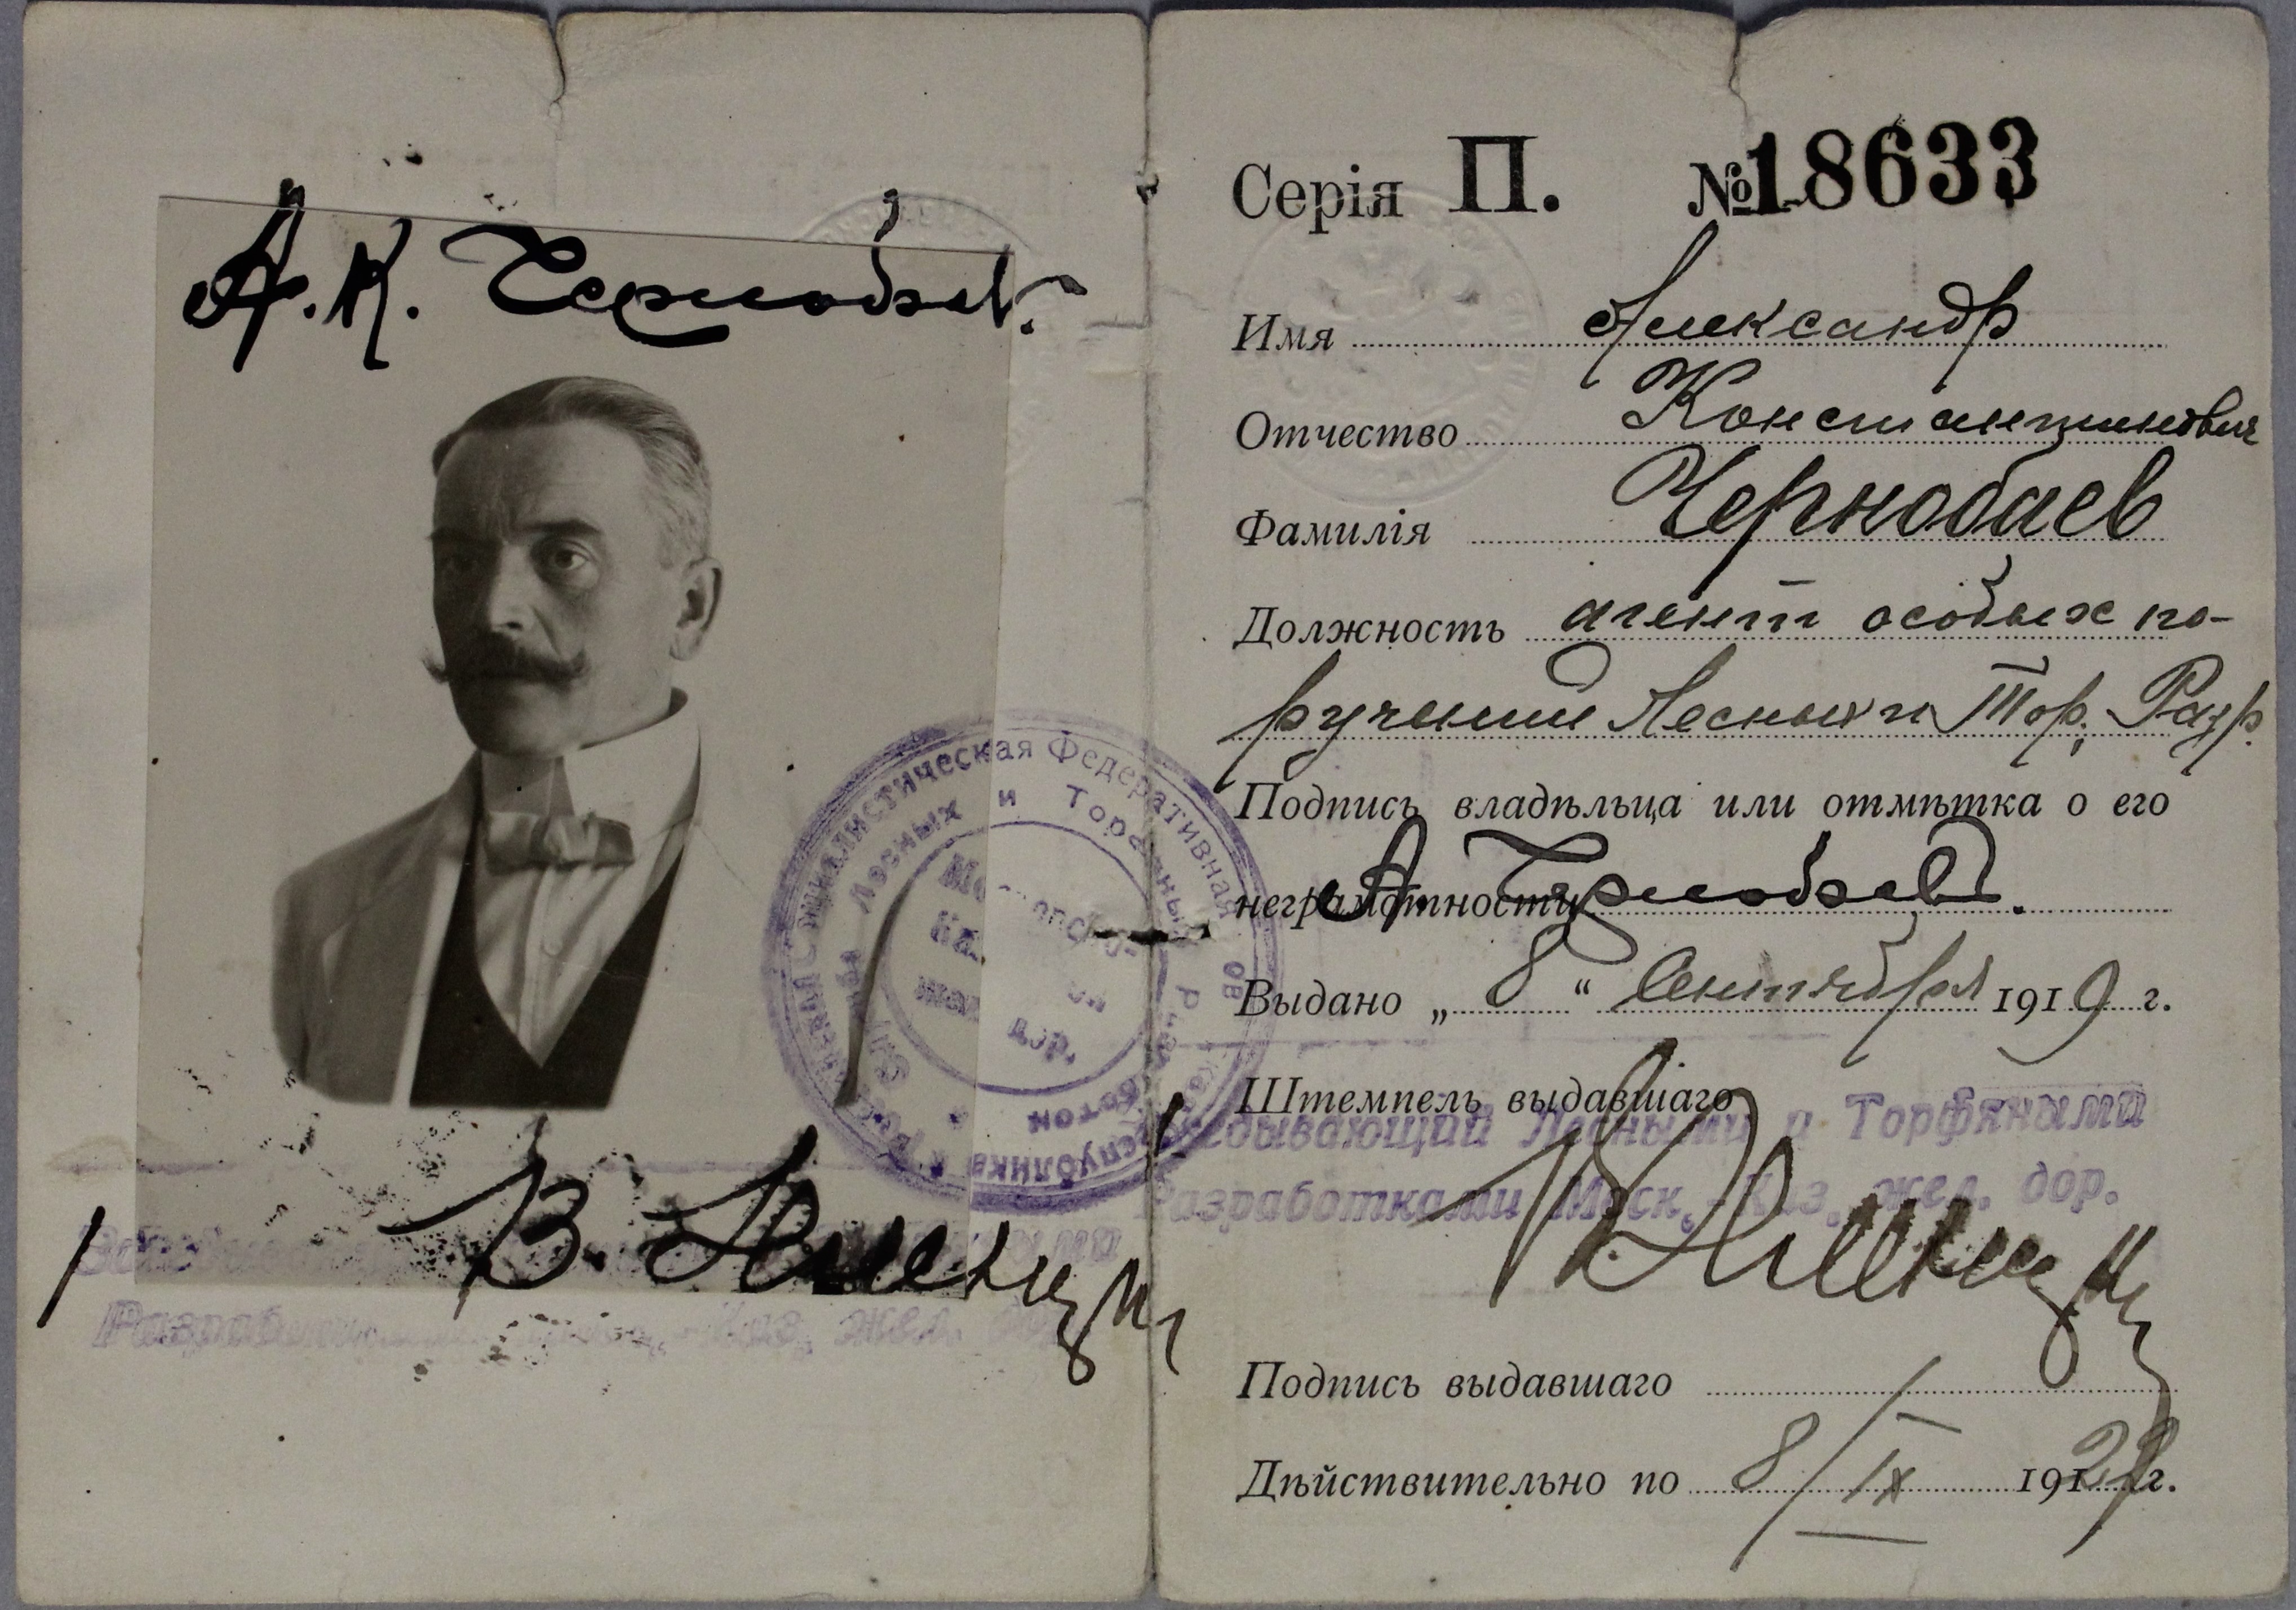 А. К. Чернобаев.
Серія П. №18633
Имя Александр
Отчество Константинович
Фамилія Чернобаев
Должность агент особых по-
ручений Лесных и Торф. Разр.
Подпись владѣльца или отмѣтка о его
неграмотности А. Чернобаев.
Выдано „ 8 “ Сентября 1919 г.
Штемпель выдавшаго
Заведывающий Лесными и Торфяными
Разработками Моск.-Каз. жел. дор.
Подпись выдавшаго
Дѣйствительно по 8/IX 191 г.
Социалистическая Федеративная
Республика
Лесных и Торфяных
дор.
Разработками Каз. жел.